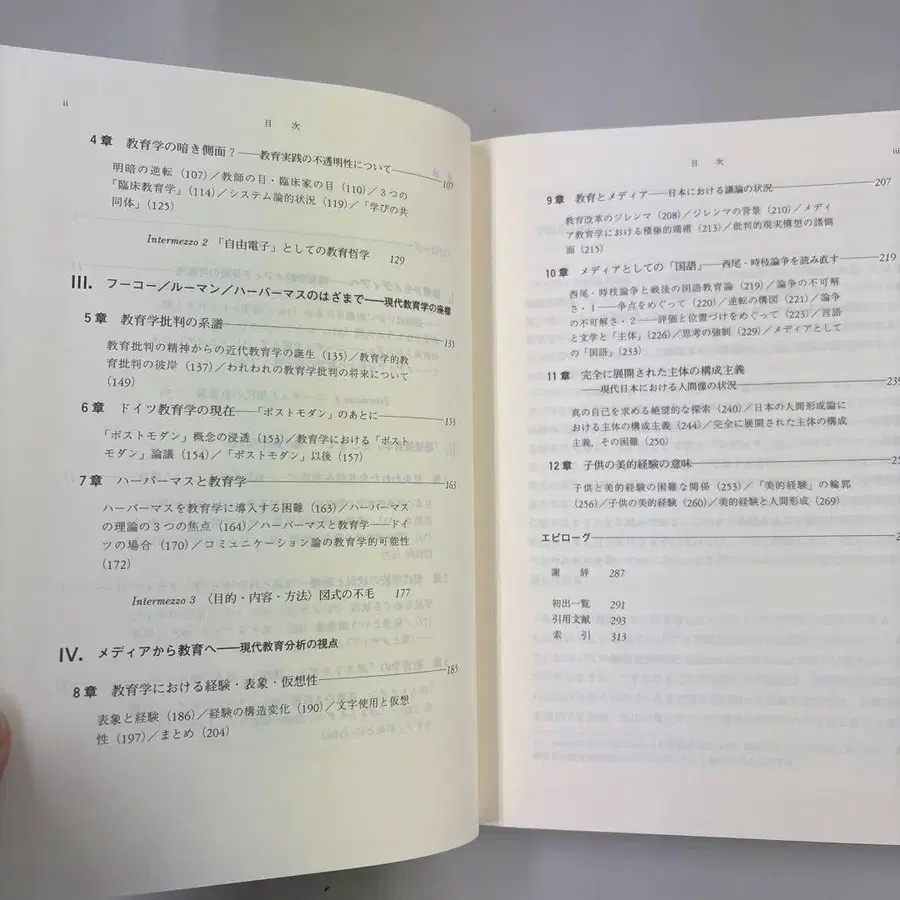 ii
目 次
4章 教育学の暗き側面？──教育実践の不透明性について── 107
明暗の逆転（107）／教師の目・臨床家の目（110）／3つの
「臨床教育学」（114）／システム論的状況（119）／「学びの共
同体」（125）
Intermezzo 2 「自由電子」としての教育哲学 129
III. フーコー／ルーマン／ハーバーマスのはざまで──現代教育学の座標
5章 教育学批判の系譜 133
教育批判の精神からの近代教育学の誕生（135）／教育学的教
育批判の彼岸（137）／われわれの教育学批判の将来について
（149）
6章 ドイツ教育学の現在──「ポストモダン」のあとに── 153
「ポストモダン」概念の浸透（153）／教育学における「ポスト
モダン」論議（154）／「ポストモダン」以後（157）
7章 ハーバーマスと教育学 163
ハーバーマスを教育学に導入する困難（163）／ハーバーマス
の理論の3つの焦点（164）／ハーバーマスと教育学──ドイ
ツの場合（170）／コミュニケーション論の教育学的可能性
（172）
Intermezzo 3 〈目的・内容・方法〉図式の不毛 177
IV. メディアから教育へ──現代教育分析の視点
8章 教育学における経験・表象・仮想性 185
表象と経験（186）／経験の構造変化（190）／文字使用と仮想
性（197）／まとめ（204）
目 次
iii
9章 教育とメディア──日本における議論の状況 207
教育改革のジレンマ（208）／ジレンマの背景（210）／メディ
ア教育学における積極的端緒（213）／批判的現実構想の諸側
面（215）
10章 メディアとしての「国語」──西尾・時枝論争を読み直す 219
西尾・時枝論争と戦後の国語教育論（219）／論争の不可解
さ・1──争点をめぐって（220）／逆転の構図（221）／論争
の不可解さ・2──評価と位置づけをめぐって（223）／言語
と文学と「主体」（226）／思考の強制（229）／メディアとして
の「国語」（233）
11章 完全に展開された主体の構成主義
──現代日本における人間像の状況 239
真の自己を求める絶望的な探索（240）／日本の人間形成論に
おける主体の構成主義（244）／完全に展開された主体の構成
主義，その困難（250）
12章 子供の美的経験の意味
子供と美的経験の困難な関係（253）／「美的経験」の輪郭
（256）／子供の美的経験（260）／美的経験と人間形成（269）
エピローグ
謝 辞 287
初出一覧 291
引用文献 293
索 引 313